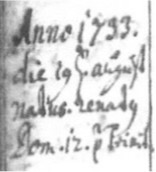 Anno 1733.
die 19 august
natus. renaty
Dom. 12. p Trinit.